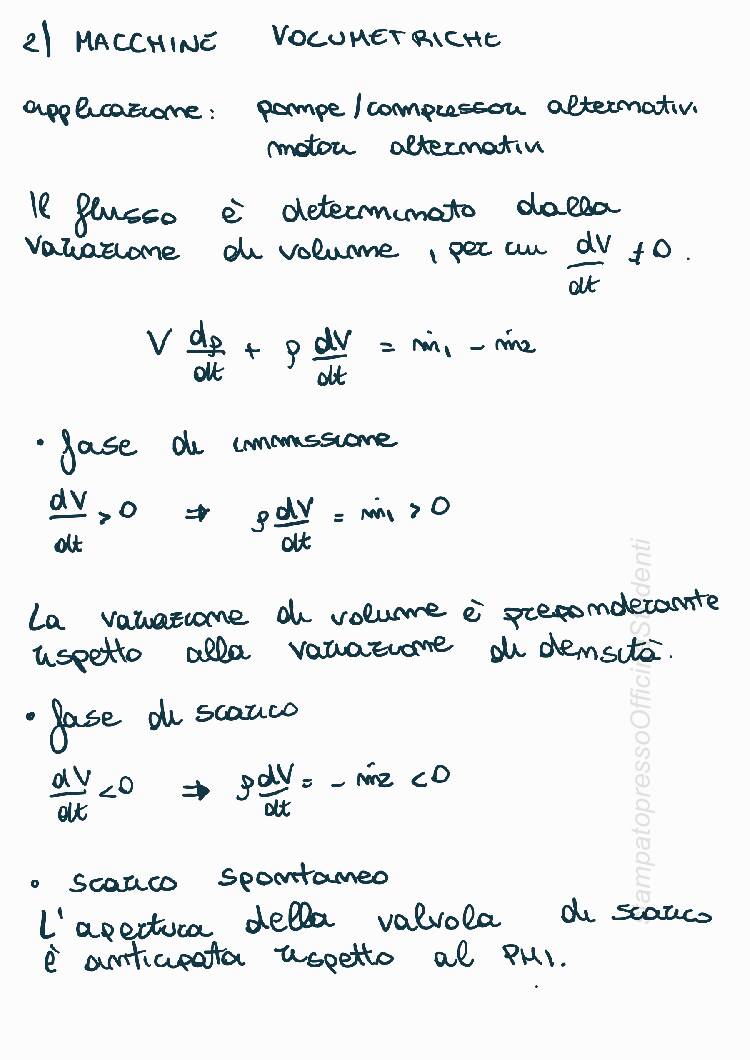 2) MACCHINE VOLUMETRICHE
applicazione: pompe/compressori alternativi
motori alternativi
Il flusso è determinato dalla
variazione di volume, per cui dV/dt ≠ 0.
V dρ/dt + ρ dV/dt = ṁ₁ - ṁ₂
• fase di immissione
dV/dt > 0 ⇒ ρ dV/dt = ṁ₁ > 0
La variazione di volume è preponderante
rispetto alla variazione di densità.
• fase di scarico
dV/dt < 0 ⇒ ρ dV/dt = - ṁ₂ < 0
• scarico spontaneo
L'apertura della valvola di scarico
è anticipata rispetto al PMI.